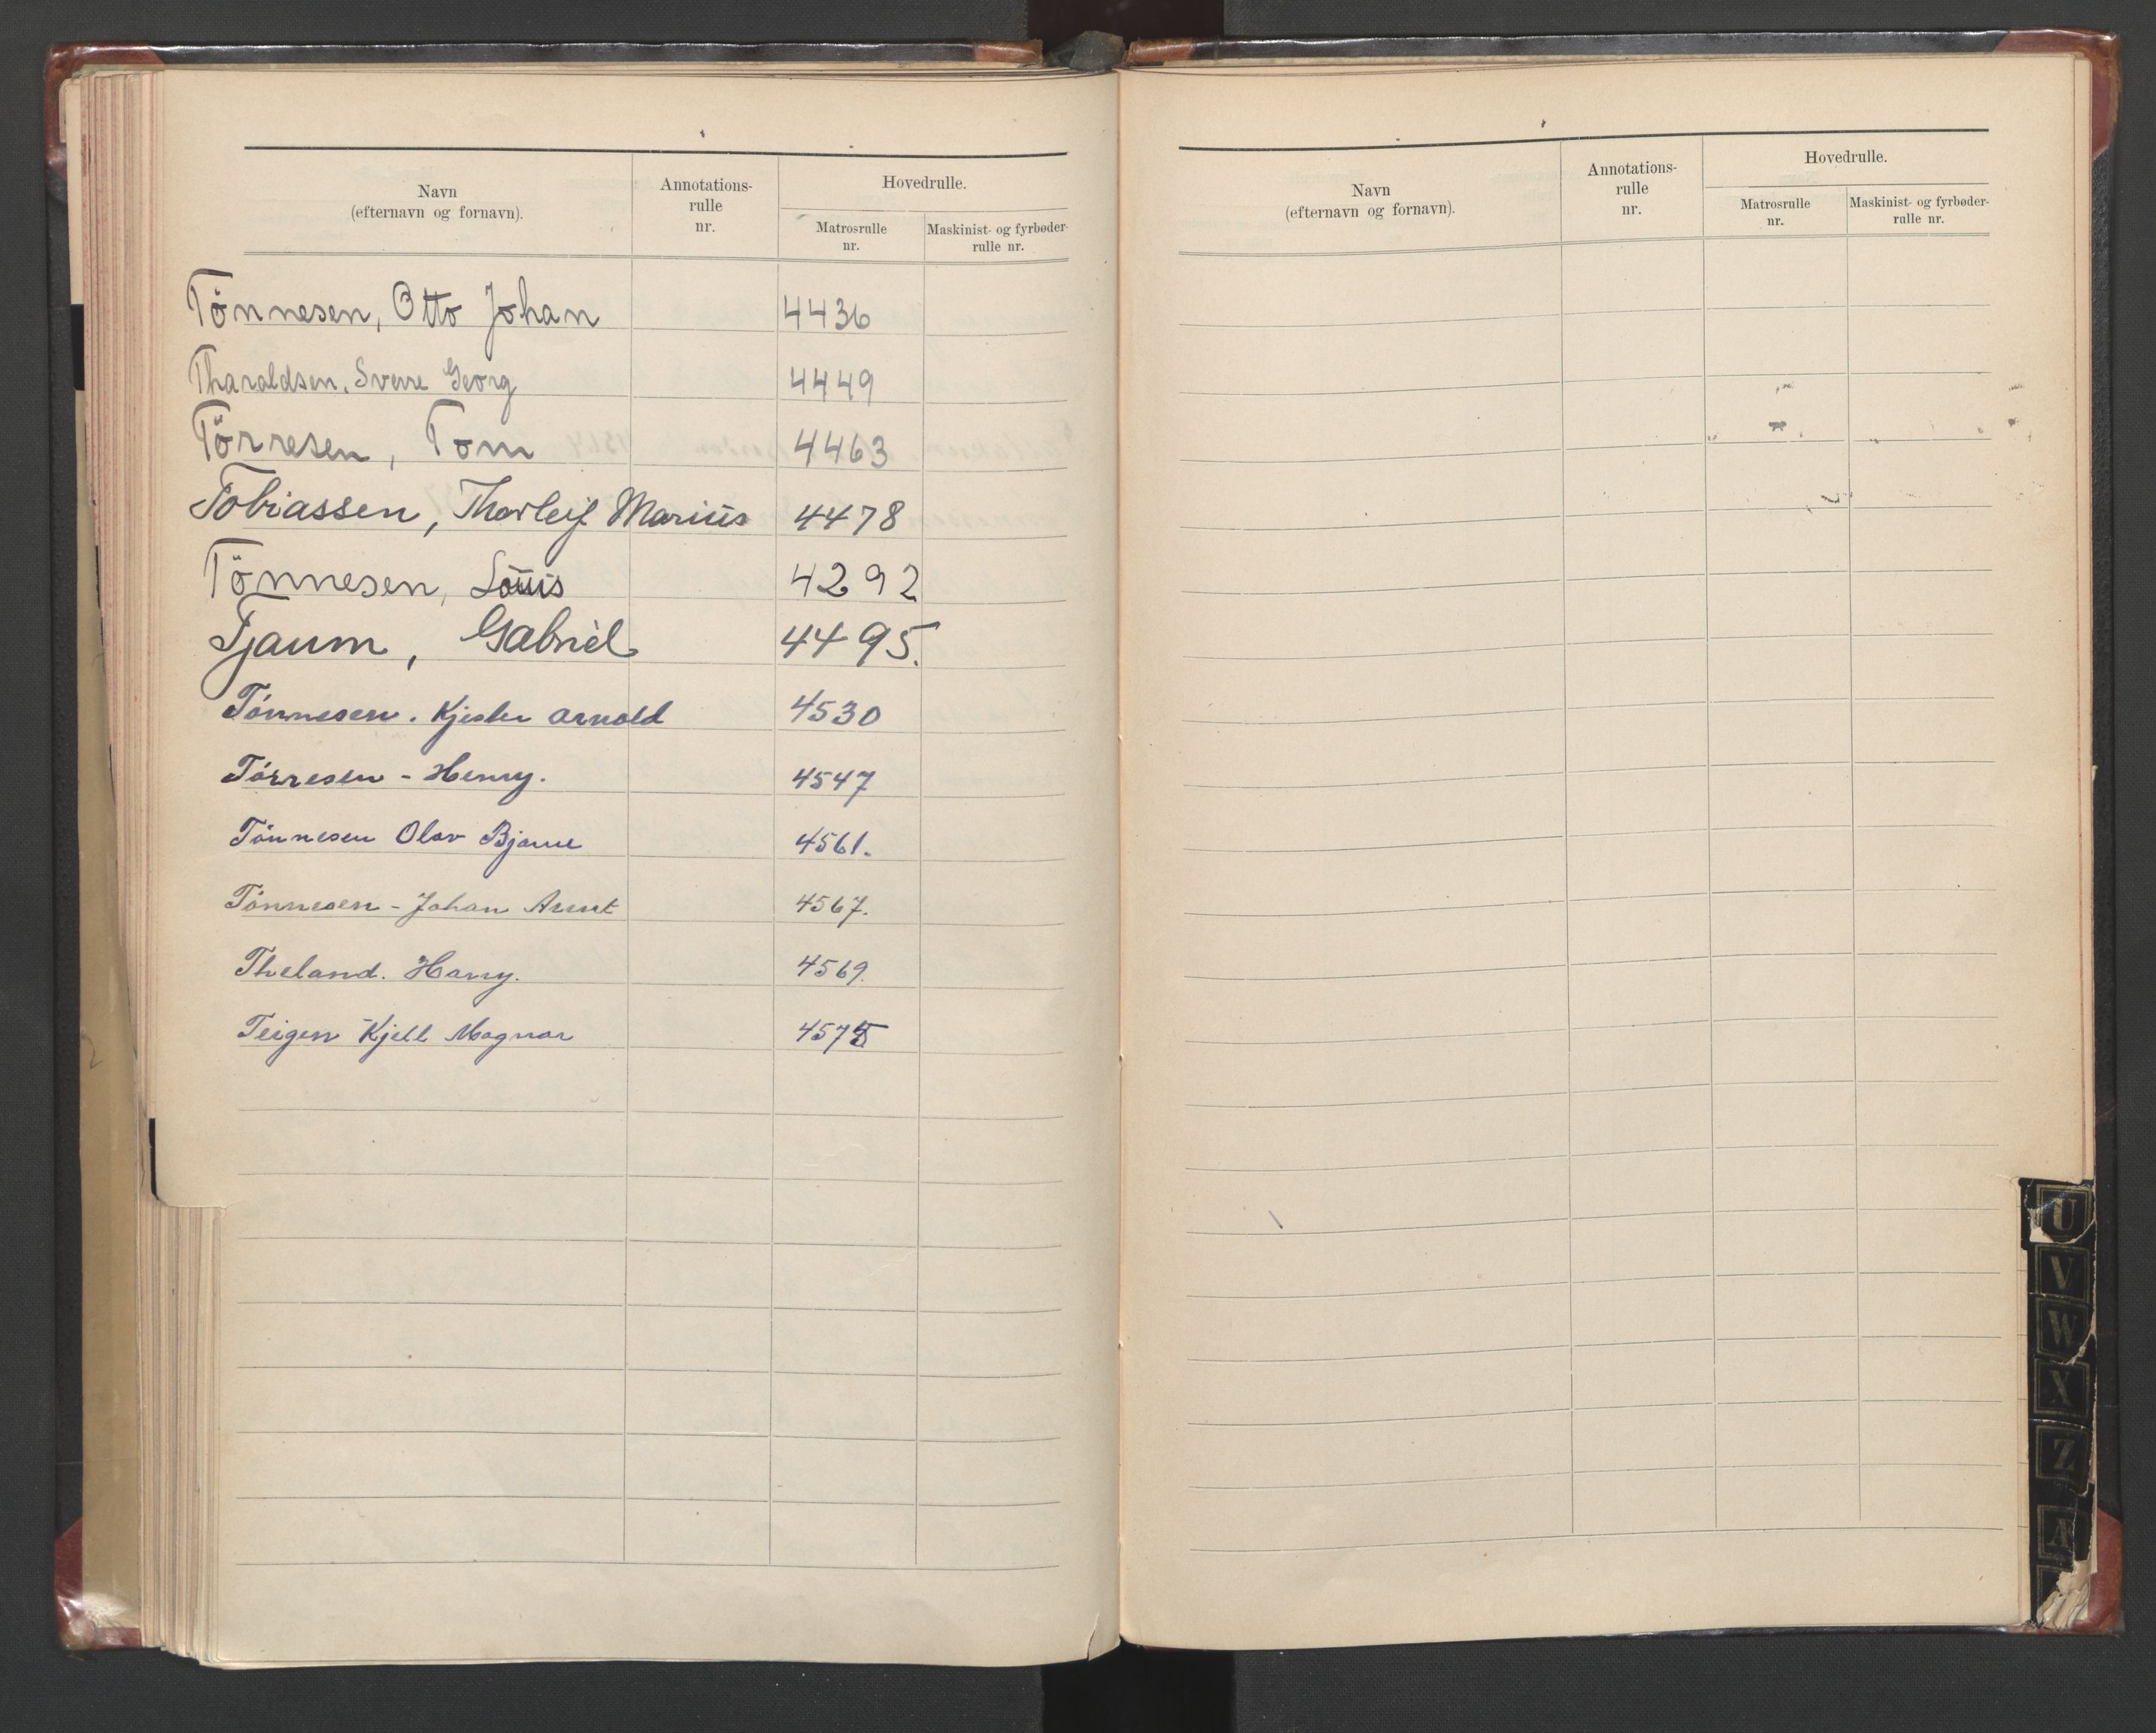 Navn
(efternavn og fornavn).
Annotations-
rulle
nr.
Hovedrulle.
Matrosrulle
nr.
Maskinist- og fyrbøder-
rulle nr.
Tönnesen, Otto Johan 4436
Tharaldsen, Sverre Georg 4449
Törresen, Tom 4463
Tobiassen, Thorleif Marius 4478
Tönnesen, Louis 4292
Tjaum, Gabriel 4495.
Tönnesen. Arnold 4530
Törresen - Henry. 4547
Tönnesen Olav Bjarne 4561.
Tönnesen - Johan Arent 4567.
Theland. Harry. 4569.
Teigen Kjell Magnar 4575
Navn
(efternavn og fornavn).
Annotations-
rulle
nr.
Hovedrulle.
Matrosrulle
nr.
Maskinist- og fyrbøder-
rulle nr.
U
V
W
X
Z
Æ